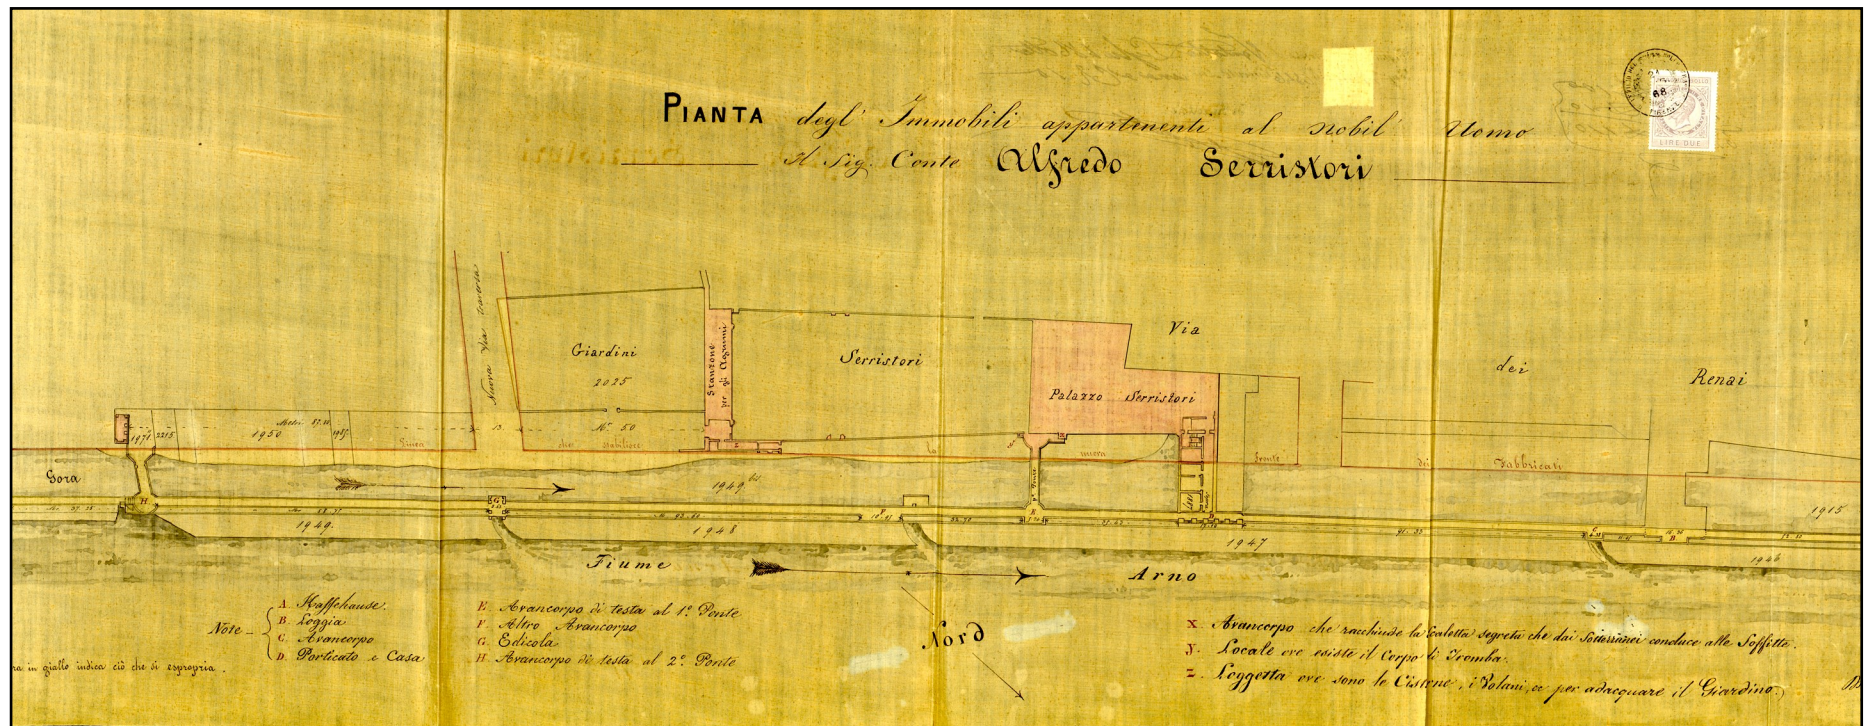 PIANTA degl' Immobili appartenenti al Nobil' Uomo
Il Sig. Conte Alfredo Serristori
68
LIRE DUE
Nuova Via traversa
Giardini
2025
Stanzone
per gli Agrumi
Serristori
Palazzo Serristori
Via
dei
Renai
1971
2215
1950
Metri
13.
N.º 50
Linea
che
stabilisce
la
nuova
Fronte
dei
Fabbricati
Gora
H
G
1949 bis
F
E
D
C
B
1915
1949.
1948
1947
1946
Fiume
Arno
Nord
Note
A. Kaffehause.
B. Loggia
C. Avancorpo
D. Porticato e Casa
E. Avancorpo di testa al 1.º Ponte
F. Altro Avancorpo
G. Edicola
H. Avancorpo di testa al 2.º Ponte
X. Avancorpo che racchiude la Scaletta segreta che dai Sotterranei conduce alle Soffitte.
Y. Locale ove esiste il Corpo di Tromba.
Z. Loggetta ove sono le Cisterne, i Volani, ec per adacquare il Giardino.
ra in giallo indica ciò che si espropria.